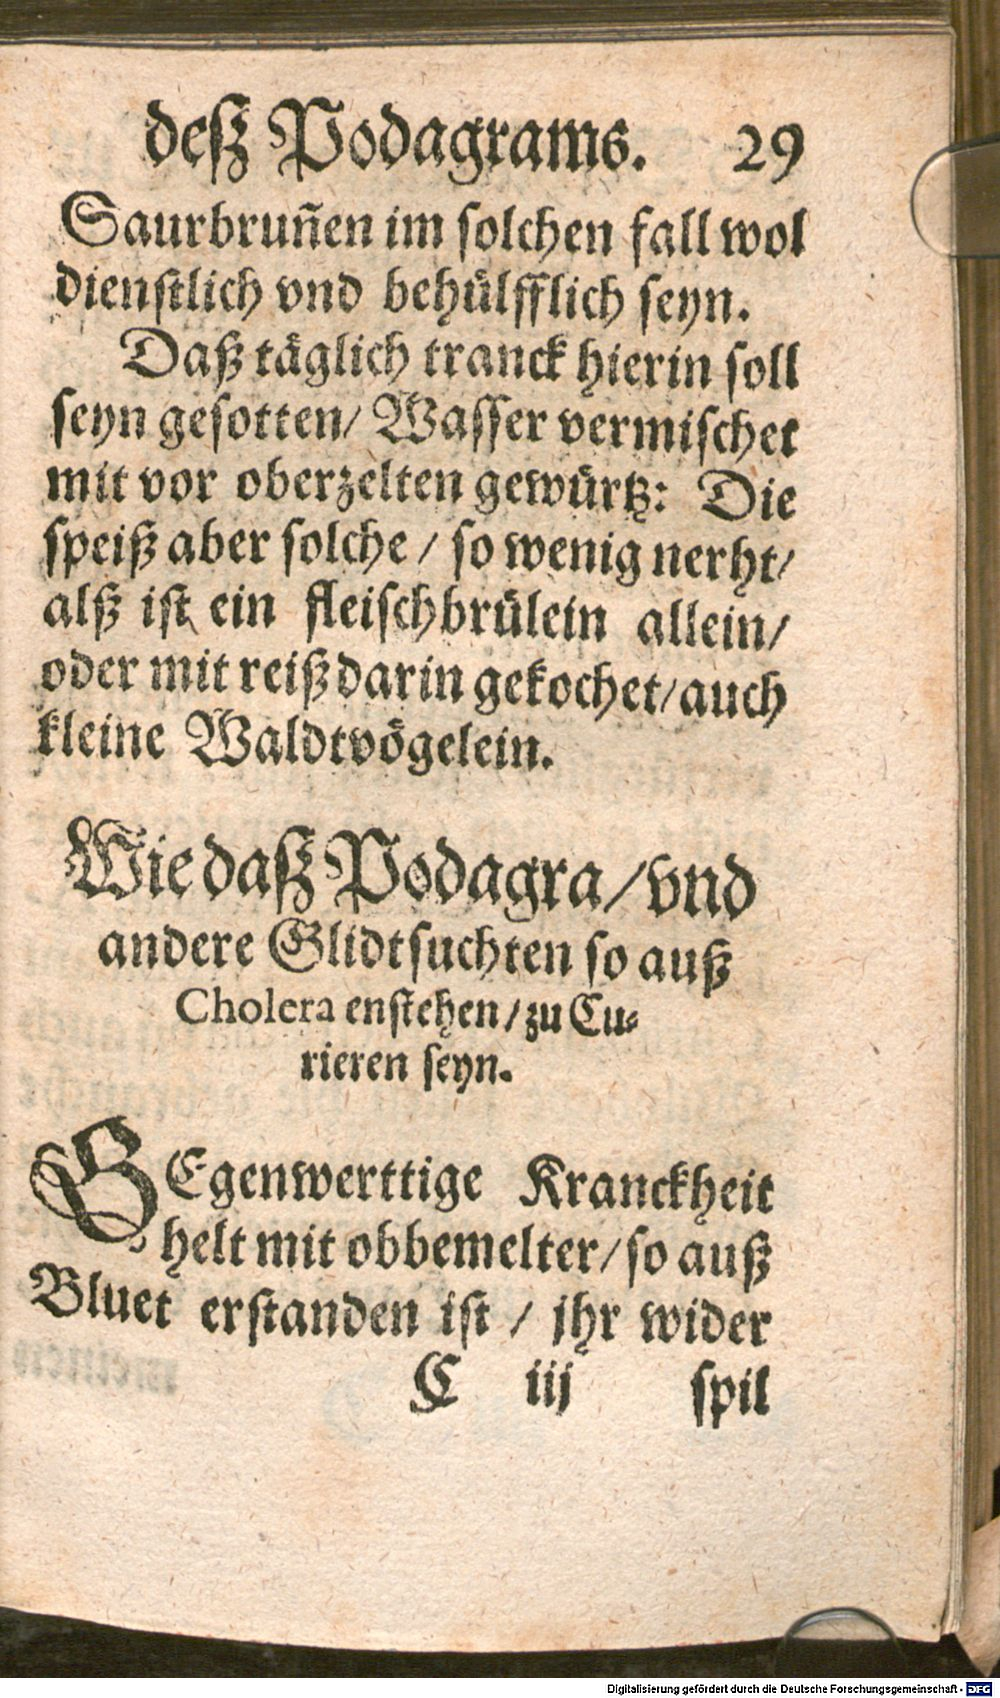 deß Podagrams. 29
Saurbruñen im solchen fall wol
dienstlich vnd behülfflich seyn.
Daß täglich tranck hierin soll
seyn gesotten/ Wasser vermischet
mit vor oberzelten gewürtz: Die
speiß aber solche / so wenig nerht/
alß ist ein fleischbrülein allein/
oder mit reiß darin gekochet/ auch
kleine Waldtvögelein.
Wie daß Podagra / vnd
andere Glidtsuchten so auß
Cholera enstehen / zu Cu-
rieren seyn.
GEgenwerttige Kranckheit
helt mit obbemelter/ so auß
Bluet erstanden ist / jhr wider
C iij spil
Digitalisierung gefördert durch die Deutsche Forschungsgemeinschaft - DFG